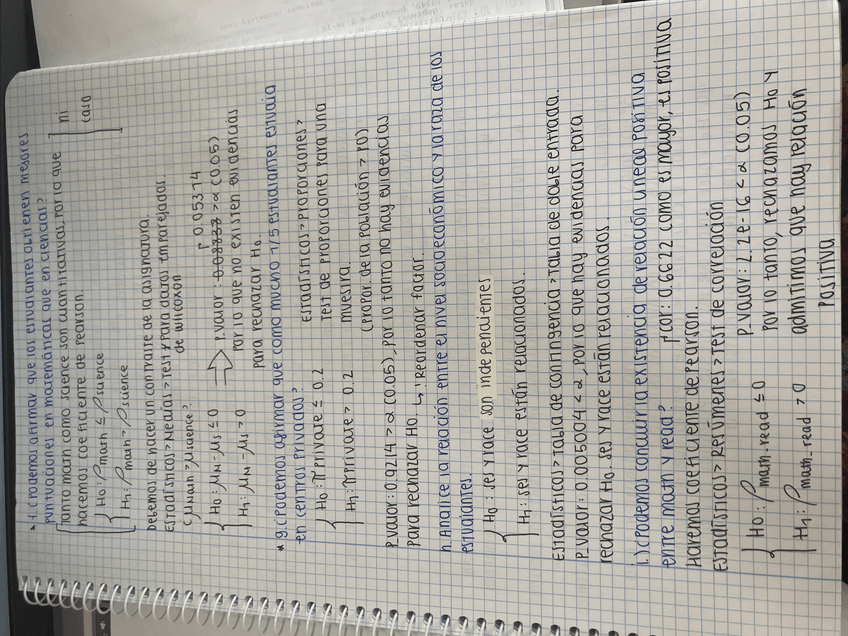 * f. ¿Podemos afirmar que los estudiantes obtienen mejores
puntuaciones en matemáticas que en ciencias?
Tanto math como science son cuantitativas, por lo que
hacemos coeficiente de Pearson.
ni caso
H0: ρ math ≤ ρ science
H1: ρ math > ρ science
Debemos de hacer un contraste de la asignatura.
Estadísticos > Medias > Test t para datos emparejados
de wilcoxon
¿μmath > μscience?
H0: μM - μS ≤ 0
H1: μM - μS > 0
0.05374
P.valor: > α (0.05)
Por lo que no existen evidencias
para rechazar H0.
* g. ¿Podemos afirmar que como mucho 1/5 estudiantes estudia
en centros privados?
H0: π private ≤ 0.2
H1: π private > 0.2
Estadísticos > Proporciones >
Test de proporciones para una
muestra.
(Propor. de la población > P0)
P.valor: 0.9214 > α (0.05), por lo tanto no hay evidencias
para rechazar H0. ↳ Reordenar factor.
h. Analice la relación entre el nivel socioeconómico y la raza de los
estudiantes.
H0: ses y race son independientes
H1: ses y race están relacionados.
Estadísticos > Tabla de contingencia > Tabla de doble entrada.
P.valor: 0.005004 < α, por lo que hay evidencias para
rechazar H0. ses y race están relacionados.
i.) ¿Podemos concluir la existencia de relación lineal positiva
entre math y read? rcor: 0.6622 como es mayor, es positiva
Haremos coeficiente de Pearson.
Estadísticos > Resúmenes > Test de correlación
H0: ρ math-read ≤ 0
H1: ρ math-read > 0
P.valor: 2.2e-16 < α (0.05)
Por lo tanto, rechazamos H0 y
admitimos que hay relación
positiva